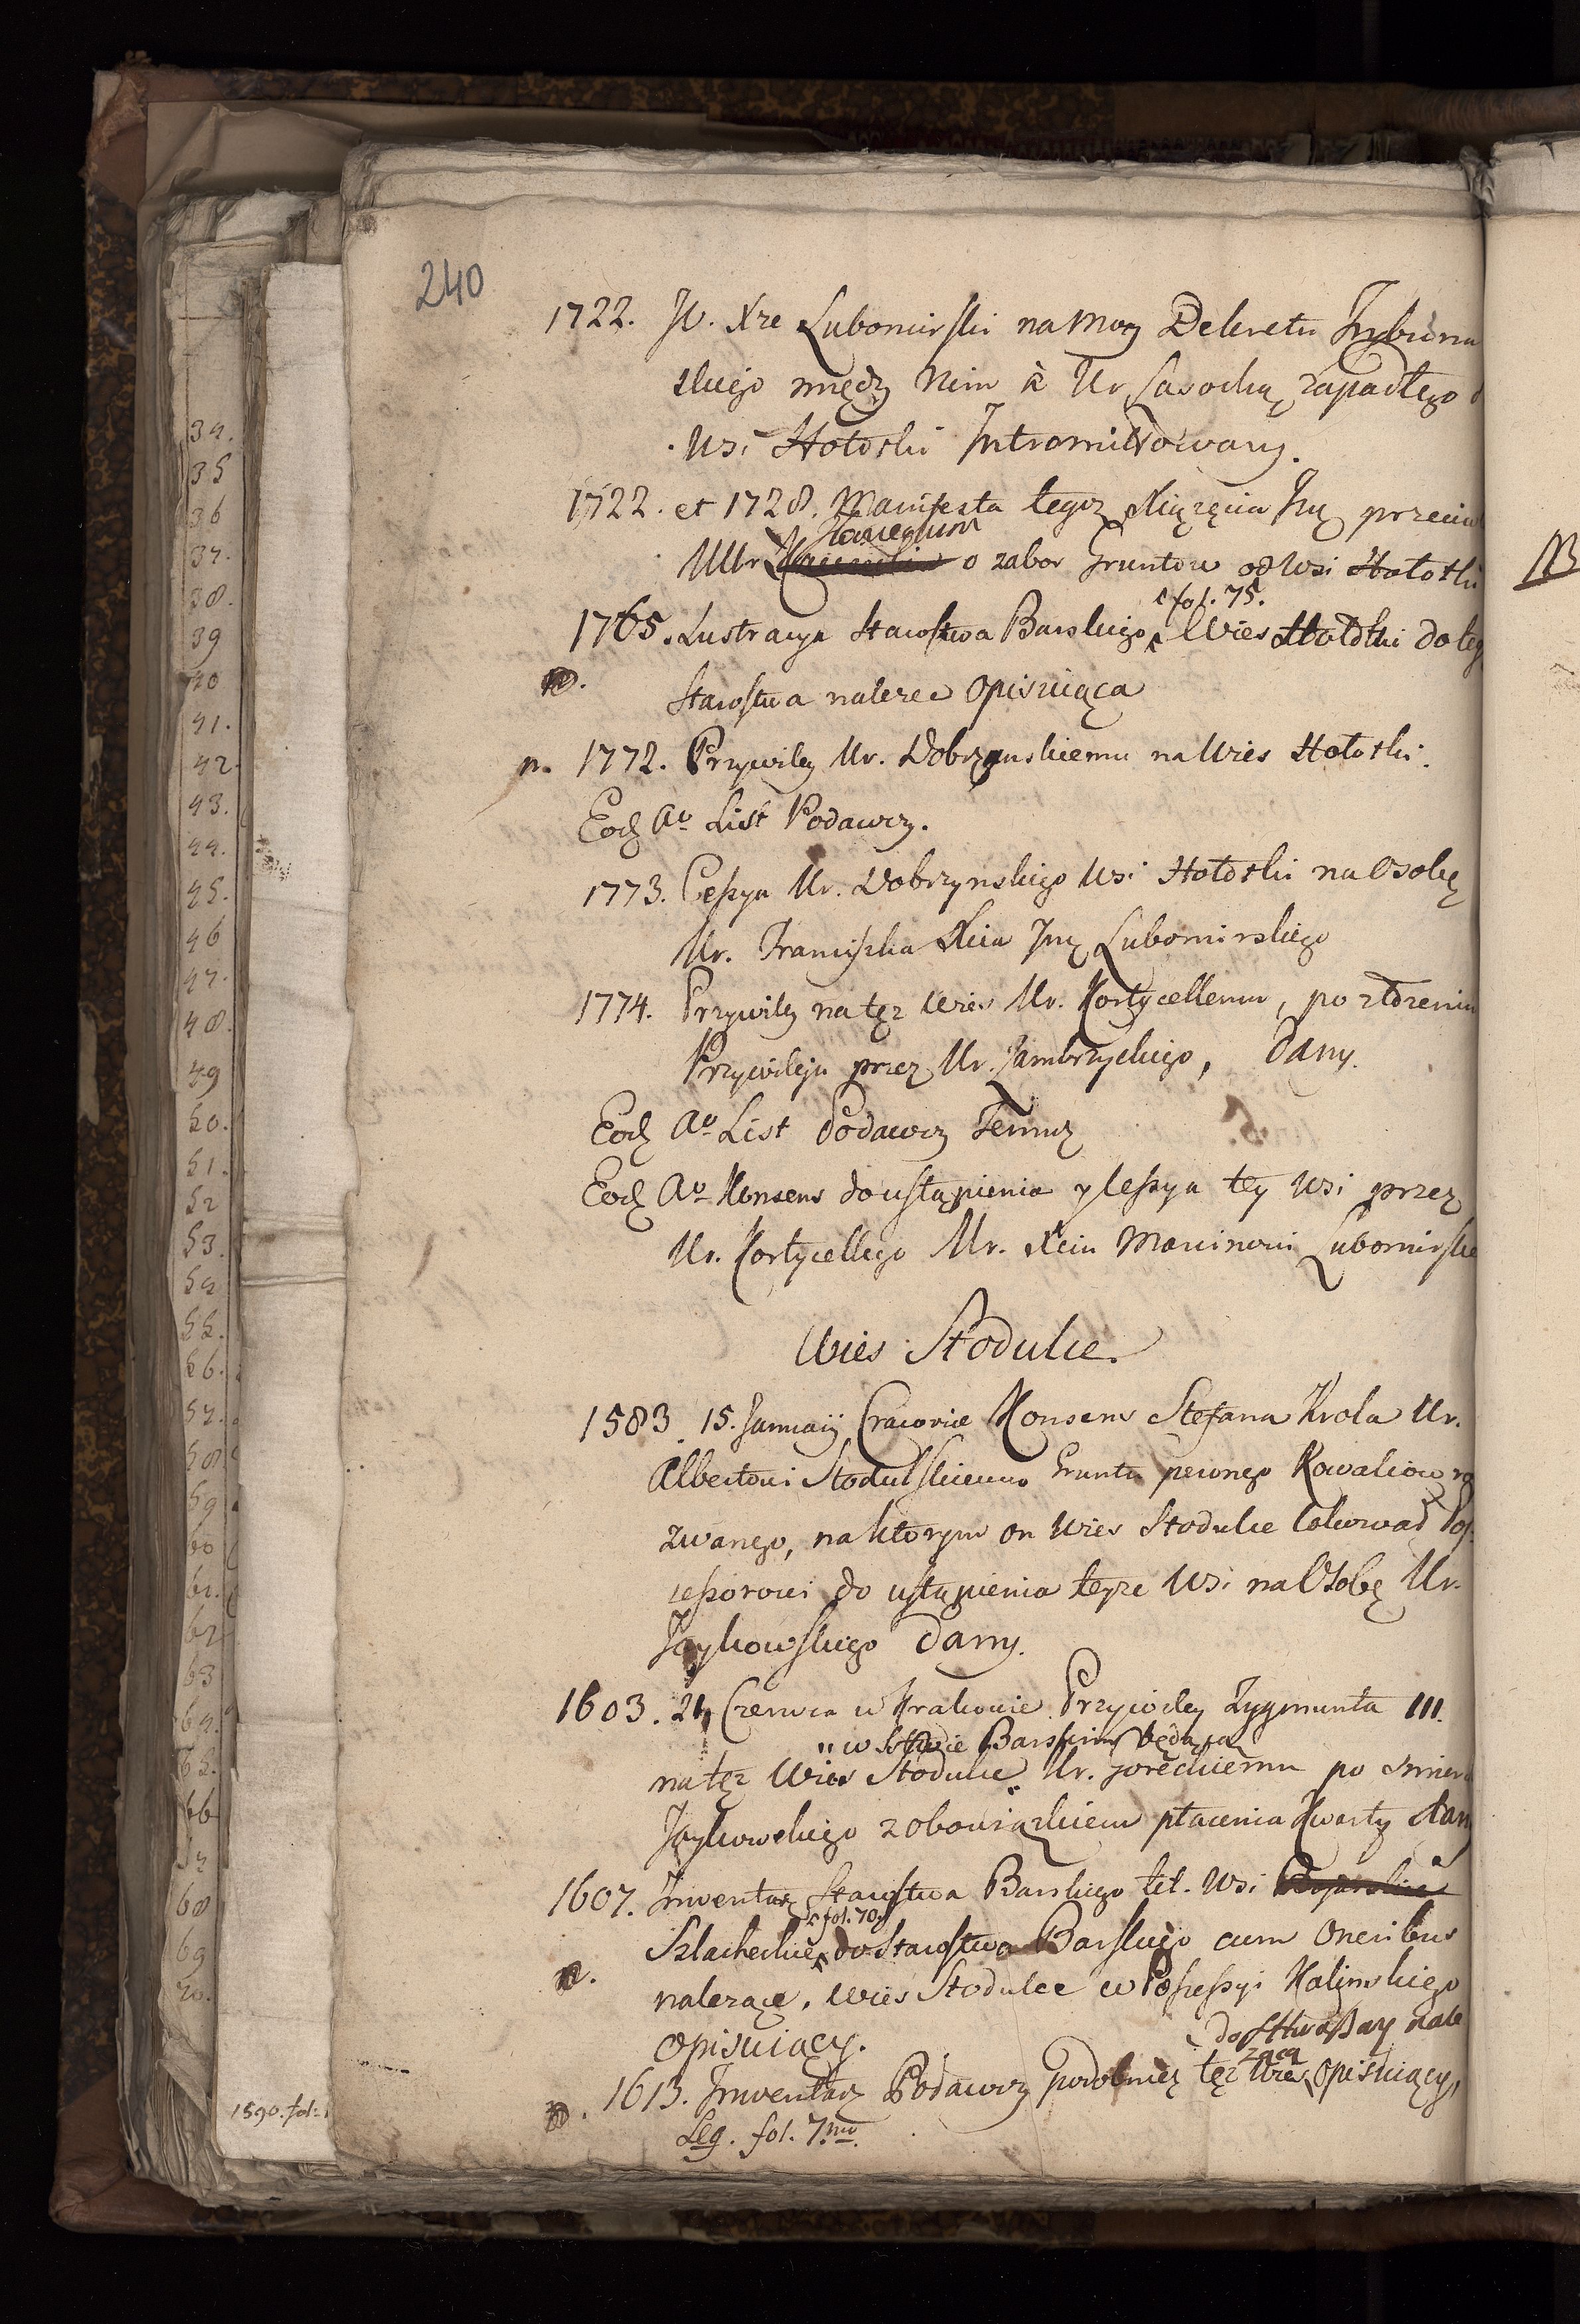 240
1722. JO. Xże Lubomirski na Mocy Dekretu Trybuna
skiego między Nim à Ur Lasocką zapadłego
Wsi Hołotki Intromittowany.
1722. et 1728. Manifesta tegoz Xiązęcia Jmć przeciw
o zabor Gruntow od Wsi Hołotki
fol. 75.
1765. Lustracya Starostwa Barskiego, Wies Hołotki do teg
Starostwa nalezec Opisuiąca
n. 1772. Przywiley Ur. Dobrzynskiemu na Wies Hołotki.
Eod Ao List Podawczy.
1773. Cessya Ur. Dobrzynskiego Wsi Hołotki na Osobę
Ur. Franciszka Xcia Jmć Lubomirskiego
1774. Przywiley na tęz Wies Ur. Kortycellemu, po złozeniu
Przywileju przez Ur. Zambrzyckiego, Dany.
Eod Ao List Podawczy Temuz
Eod Ao Konsens do ustąpienia y Cessya tey Wsi przez
Ur. Kortycellego Ur. Xciu Marcinowi Lubomirskie
Wies Stodulce.
1583. 15. Januarij Cracoviæ Konsens Stefana Krola Ur.
Albertowi Stodulskiemu Gruntu pewnego Kowaliow na
zwanego, na ktorym on Wies Stodulce lokował Pos
sessorowi do ustąpienia teyze Wsi na Osobę Ur.
Jaykowskiego Dany.
1603. 24 Czerwca w Krakowie Przywiley Zygmunta III.
w Sttwie Barskim będącą
na tęz Wies Stodulce Ur. Goreckiemu po smierci
Jaykowskiego z obowiązkiem płacenia Kwarty dany
1607. Inwentarz Starostwa Barskiego tit. Wsi
fol. 70.
Szlacheckie do Starostwa Barskiego cum Oneribus
n. nalezące, Wies Stodulce w Possessyi Kalinskiego
opisuiący.
do Sttwa Bar nale
żącą
n. 1613. Inwentarz Podawczy podobniez tęz Wies Opisuiący,
Leg. fol. 7mo.
34.
35
36
37.
38.
39
40
41.
42.
43.
44.
45.
46
47.
48.
49
50.
51.
52
53.
54
55.
56.
57.
58
59
60
61.
62
63
64.
65.
66
67
68
69
70.
1590. fol.